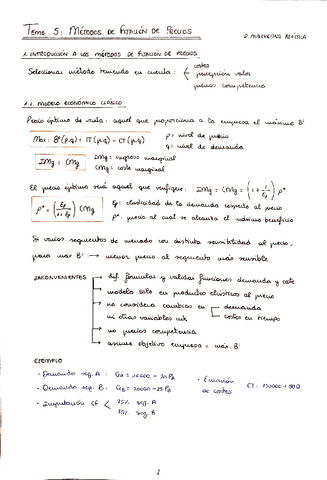 Tema 5: Métodos de Fijación de Precios
D. MARKETING POLÍTICA
1. INTRODUCCIÓN A LOS MÉTODOS DE FIJACIÓN DE PRECIOS
Seleccionar método teniendo en cuenta:
costes
percepción valor
precios competencia
1.1. MODELO ECONÓMICO CLÁSICO
Precio óptimo de venta: aquel que proporciona a la empresa el máximo Bº
Max: Bº(p,q) = IT(p,q) - CT(p,q)
p = nivel de precio
q = nivel de demanda
IMg = CMg
IMg = ingreso marginal
CMg = coste marginal
El precio óptimo será aquel que verifique: IMg = CMg = (1 + 1/Ep) p*
p* = (Ep/1+Ep) CMg
Ep: elasticidad de la demanda respecto al precio
p*: precio al cual se alcanza el máximo beneficio
Si varios segmentos de mercado con distinta sensibilidad al precio,
para max Bº → menor precio al segmento más sensible
INCONVENIENTES
dif. formular y validar funciones demanda y coste
modelo solo en productos elásticos al precio
no considera cambios en
demanda
costes en tiempo
ni otras variables mk
no precios competencia
asume objetivo empresa = máx. Bº
EJEMPLO
- Demanda seg. A
- Demanda seg. B:
- Ecuación de costes
- Imputación CF
75% seg. A
seg. B
1